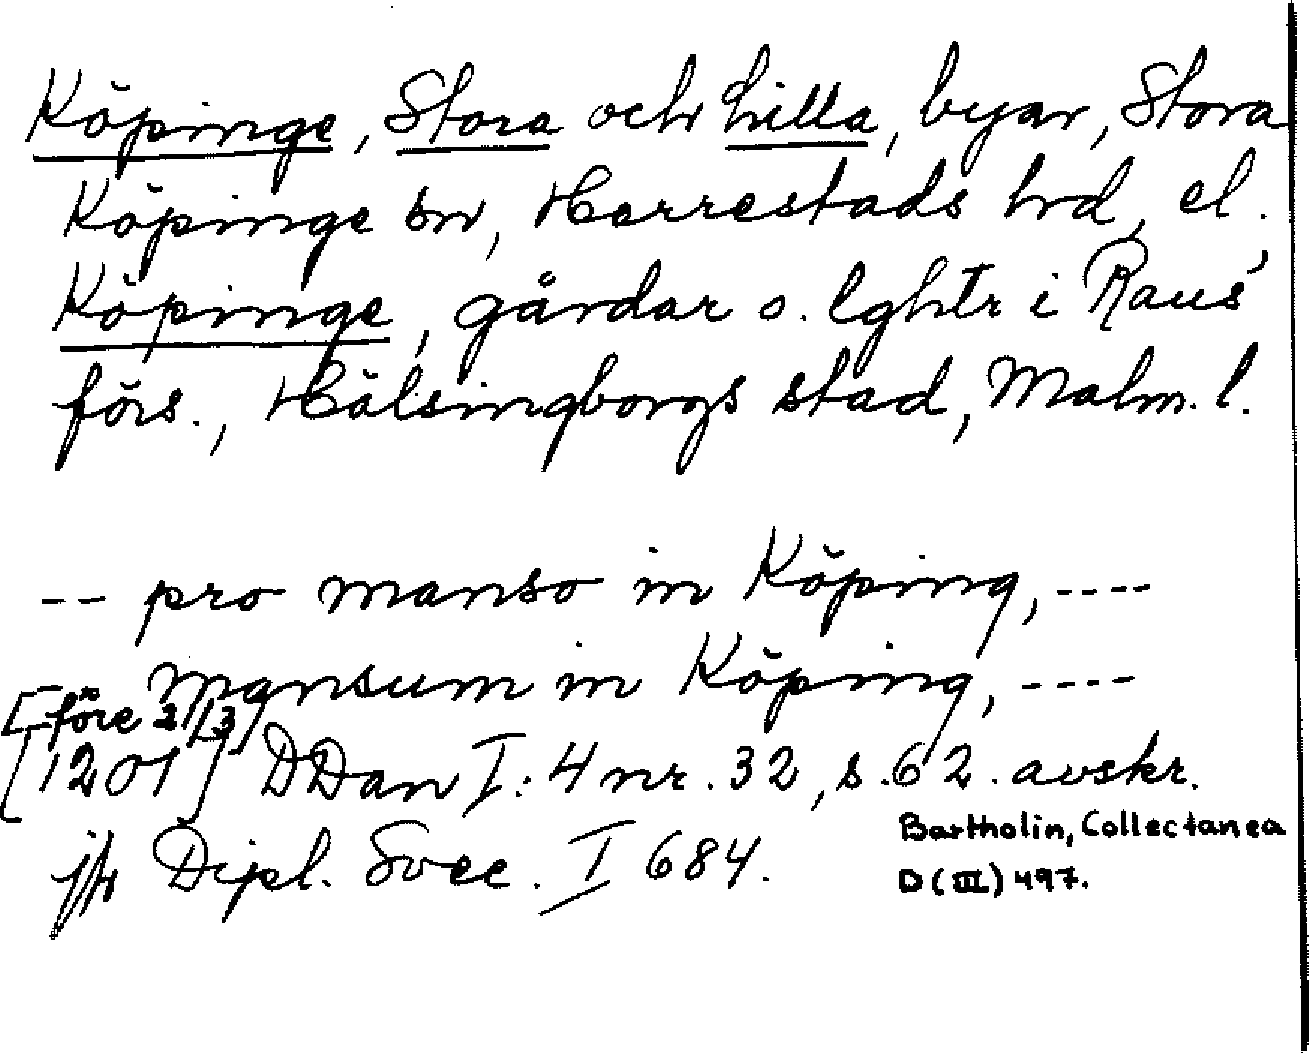 Köpinge, Stora och Lilla, byar, Stora
Köpinge sn, Herrestads hd, el.
Köpinge, gårdar o. lghtr i Raus'
förs., Hälsingborgs stad, Malm. l.
-- pro manso in Köping, ----
mansum in Köping, ----
[före 21/3]
[1201] DDan I:4 nr. 32, s. 62. avskr.
Bartholin, Collectanea
D (III) 497.
jfr Dipl. Svec. I 684.